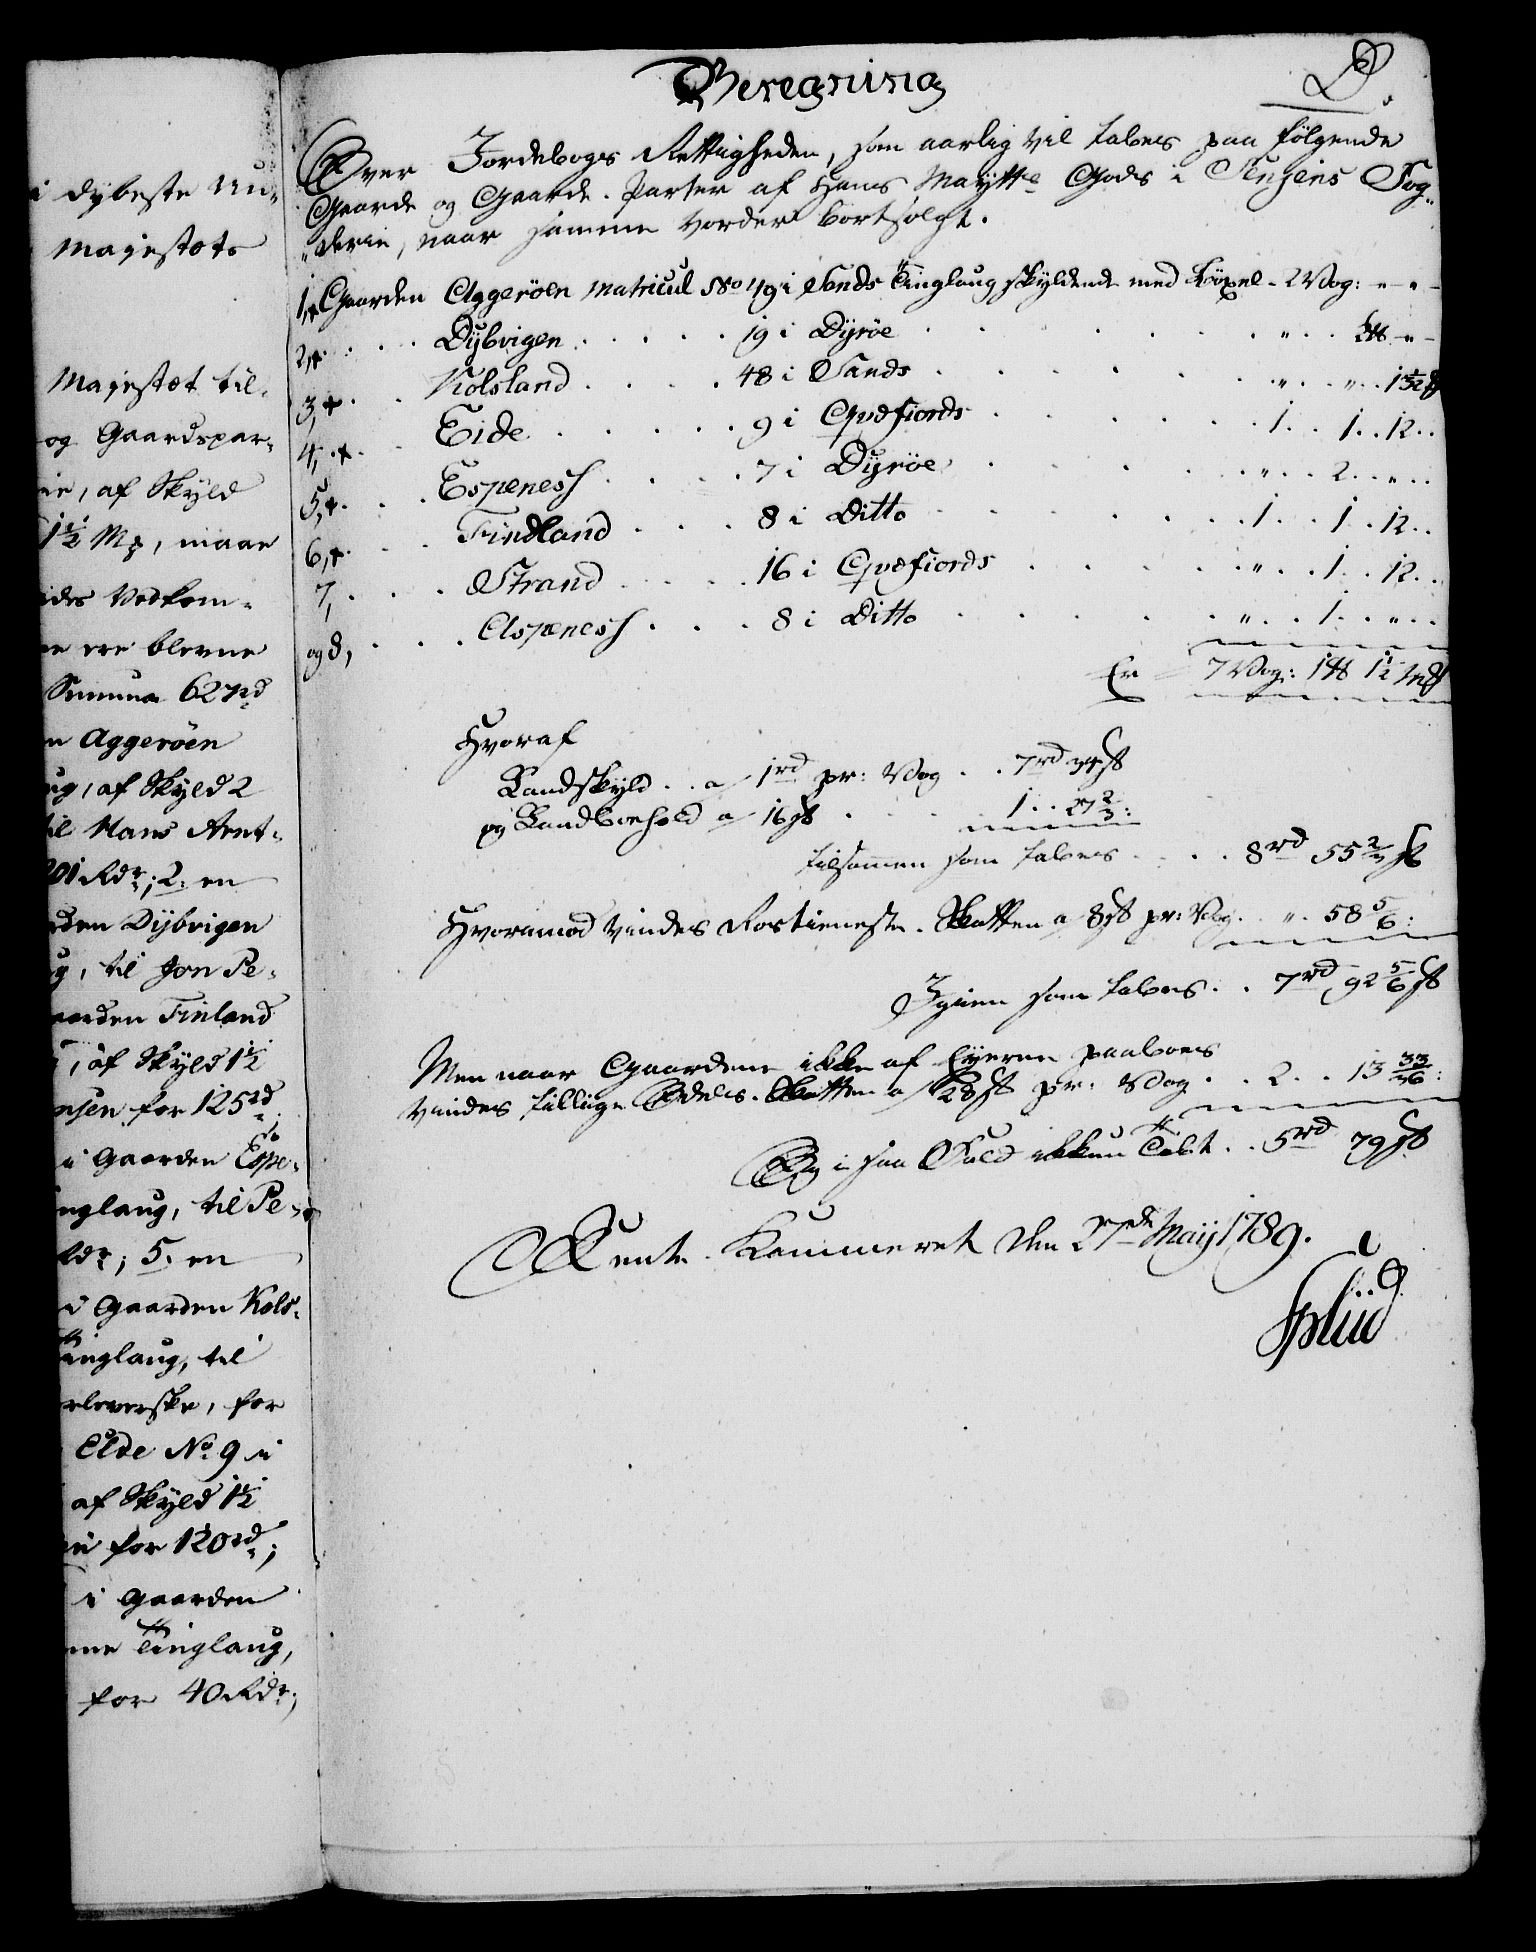 i dybeste Un-
Majestæts
Majestæt til-
og Gaardspar-
rie, af Skyld
1½ Mȝ, naar
ides Vedkom-
ne ere blevne
Summa 627rd
n Aggeröen
ug, af Skyld 2
til Hans Arent-
201 Rdr; 2. en
rden Dybvigen
ug, til Jon Pe-
aarden Finland
, af Skyld 1½
nsen for 125rd
i Gaarden Espe-
inglaug, til Pe-
Rdr; 5. en
i Gaarden Kols-
Tinglaug, til
rleverske, for
Eide No. 9 i
af Skyld 1½
n for 120rd;
i Gaarden
me Tinglaug,
for 40 Rdr;
Beregning
D.
Over Jordebogs Rettigheden, som aarlig vil tabes paa følgende
Gaarde og Gaarde-Parter af Hans Maytts Gods i Senjens Fog-
derie, naar samme vorder bortsolgt.
1, Gaarden Aggeröen Matricul No 49 i Sands Tinglaug skyldende med Bÿxel - 2 Vog: - " -
2, Dybvigen 19 i Dyröe " 2 ℔ " -
3, Kolsland 48 i Sands " " 1 1/2
4, Eide 9 i Qvæfiords 1 1 12
5, Espeness 7 i Dyröe " 2 "
6, Findland 8 i Ditto 1 1 12
7, Strand 16 i Qvæfiords " 1 12
og 8, Aspeness 8 i Ditto " 1 "
Er 7 Vog: 1 ℔ 1½ Mȝ
Hvoraf
Landskyld a 1rd pr: Vog 7rd 39 ß
og Landboehold a 16 ß 1 27 2/3:
tilsammen som tabes 8rd 55 2/3 ß
Hvorimod vindes Rostieneste-Skatten a 8 ß pr: Vog " 58 5/6:
Igien som tabes 7rd 92 5/6 ß
Men naar Gaardene ikke af Eyerne paaboes
vindes tillige Odels-Skatten a 28 ß pr. Vog 2 13 33/36:
Og i saa Fald ikkun Tabt 5rd 79 ß
Rente-Kammeret den 27de May 1789.